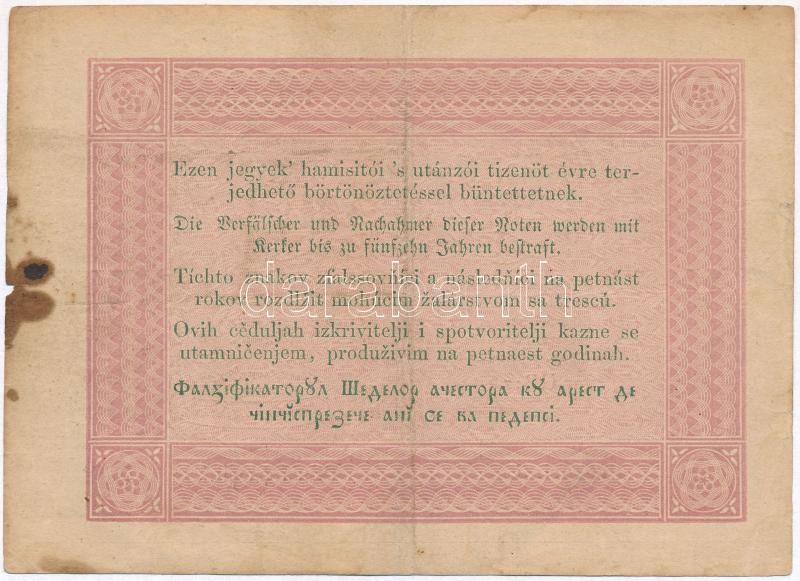 Ezen jegyek' hamisitói 's utánzói tizenöt évre ter-
jedhető börtönöztetéssel büntettetnek.
Die Verfälscher und Nachahmer dieser Noten werden mit
Kerker bis zu fünfzehn Jahren bestraft.
Tíchto znákov zfalssovňíci a násladňíci na petnást
rokov rozďížit mohúcím žalárstvom sa trescú.
Ovih cěduljah izkrivitelji i spotvoritelji kazne se
utamničenjem, produživim na petnaest godinah.
Фалзіфікаторꙋл Шеделор ачестора кꙋ арест де
чінчіспрезече ані се ва педепсі.
darabanth